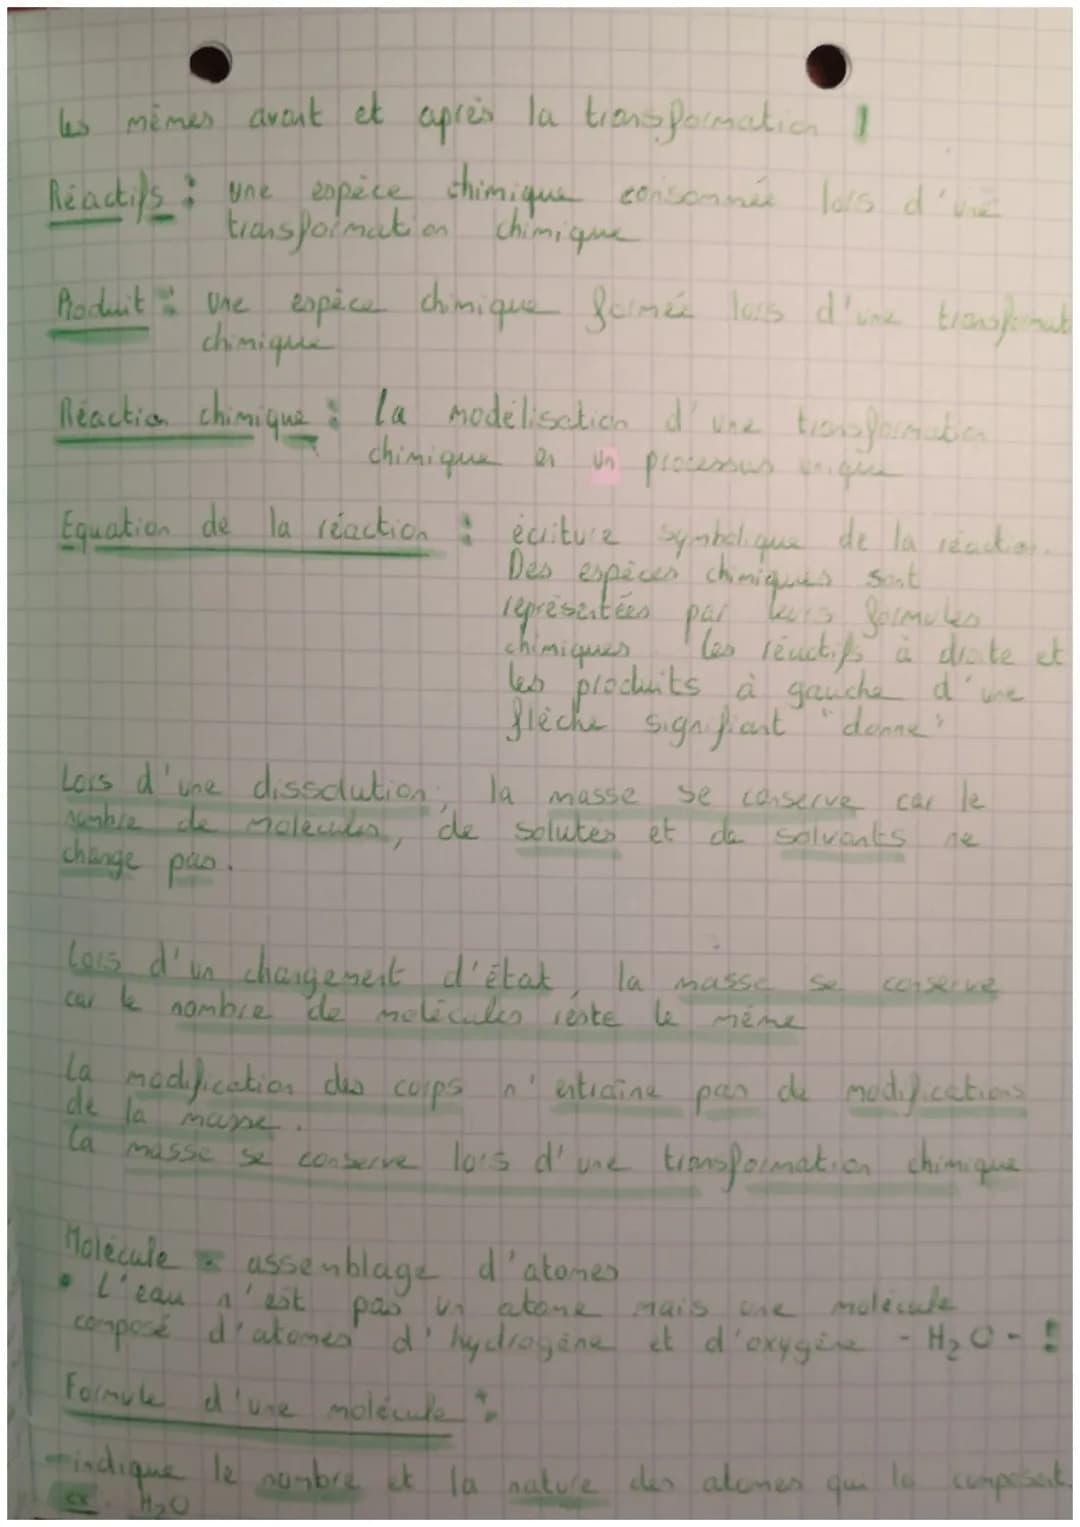 les mêmes avant et après la transformation !
Réactifs : une espèce chimique consommée lors d'une
transformation chimique
Produit : une espèce chimique formée lors d'une transformat
chimique
Réaction chimique : la modélisation d'une transformation
chimique en un processus unique
Equation de la réaction : écriture symbolique de la réaction.
Des espèces chimiques sont
représentées par leurs formules
chimiques les réactifs à droite et
les produits à gauche d'une
flèche signifiant "donne"
Lors d'une dissolution, la masse se conserve car le
nombre de molécules, de solutés et de solvants ne
change pas.
Lors d'un changement d'état, la masse se conserve
car le nombre de molécules reste le même
La modification des corps n'entraîne pas de modifications
de la masse.
La masse se conserve lors d'une transformation chimique
Molécule = assemblage d'atomes
• L'eau n'est pas un atome mais une molécule
composé d'atomes d'hydrogène et d'oxygène - H₂O - !
Formule d'une molécule :
- indique le nombre et la nature des atomes qui la composent.
ex : H₂O